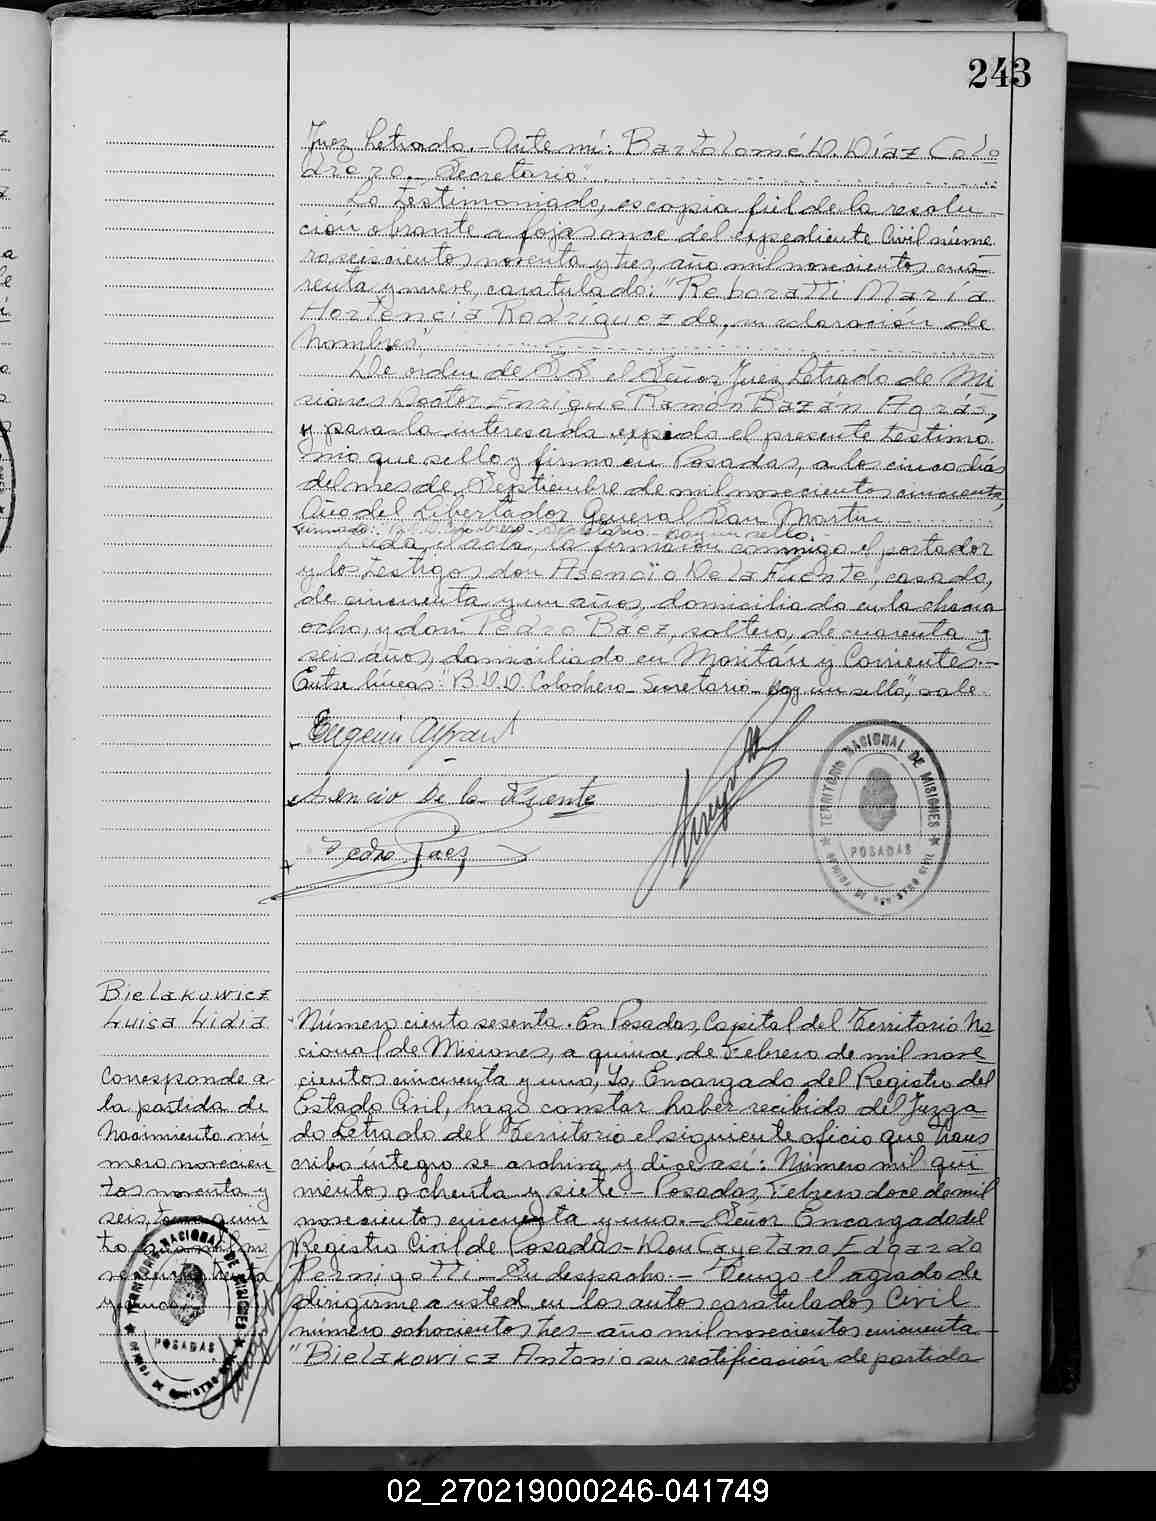 243
Juez Letrado.- Ante mí: Bartolomé D. Díaz Colo
drero.- Secretario"
Lo testimoniado, es copia fiel de la resolu-
ción obrante a fojas once del expediente Civil núme
ro seiscientos noventa y tres, año mil novecientos cua-
renta y nueve, caratulado: "Reboratti María
Hortencia Rodríguez de, su aclaración de
nombres".
De orden de S.S. el Señor Juez Letrado de Mi
siones Doctor Enrique Ramón Bazán Agrás,
y para la interesada expido el presente testimo
nio que sello y firmo en Posadas, a los cinco días
del mes de Septiembre de mil novecientos cincuenta,
Año del Libertador General San Martín
Firmado: Secretario - hay un sello.-
Leida el acta, la firmaron conmigo el portador
y los testigos don Asencio De la Fuente, casado,
de cincuenta y un años, domiciliado en la chacra
ocho, y don Pedro Báez, soltero, de cuarenta y
seis años, domiciliado en Moritán y Corrientes.-
Entre lineas: "B.D.D. Colodrero - Secretario - hay un sello", vale.
Eugenio
Asencio De la Fuente
Pedro Báez
TERRITORIO NACIONAL DE MISIONES
POSADAS
Bielakowicz
Luisa Lidia
Corresponde a
la partida de
Nacimiento nú-
mero novecien
tos noventa y
seis, tomo quin
to
novecientos treinta
TERRITORIO NACIONAL DE MISIONES
POSADAS
Número ciento sesenta. En Posadas, Capital del Territorio Na
cional de Misiones, a quince de Febrero de mil nove-
cientos cincuenta y uno, Yo, Encargado del Registro del
Estado Civil, hago constar haber recibido del Juzga-
do Letrado del Territorio el siguiente oficio que trans
cribo íntegro se archiva y dice así: Número mil qui-
nientos ochenta y siete.- Posadas, Febrero doce de mil
novecientos cincuenta y uno.- Señor Encargado del
Registro Civil de Posadas - Don Cayetano Edgardo
Pernigotti - Su despacho.- Tengo el agrado de
dirigirme a usted en los autos caratulados Civil
número ochocientos tres - año mil novecientos cincuenta -
"Bielakowicz Antonio su rectificación de partida
02_270219000246-041749